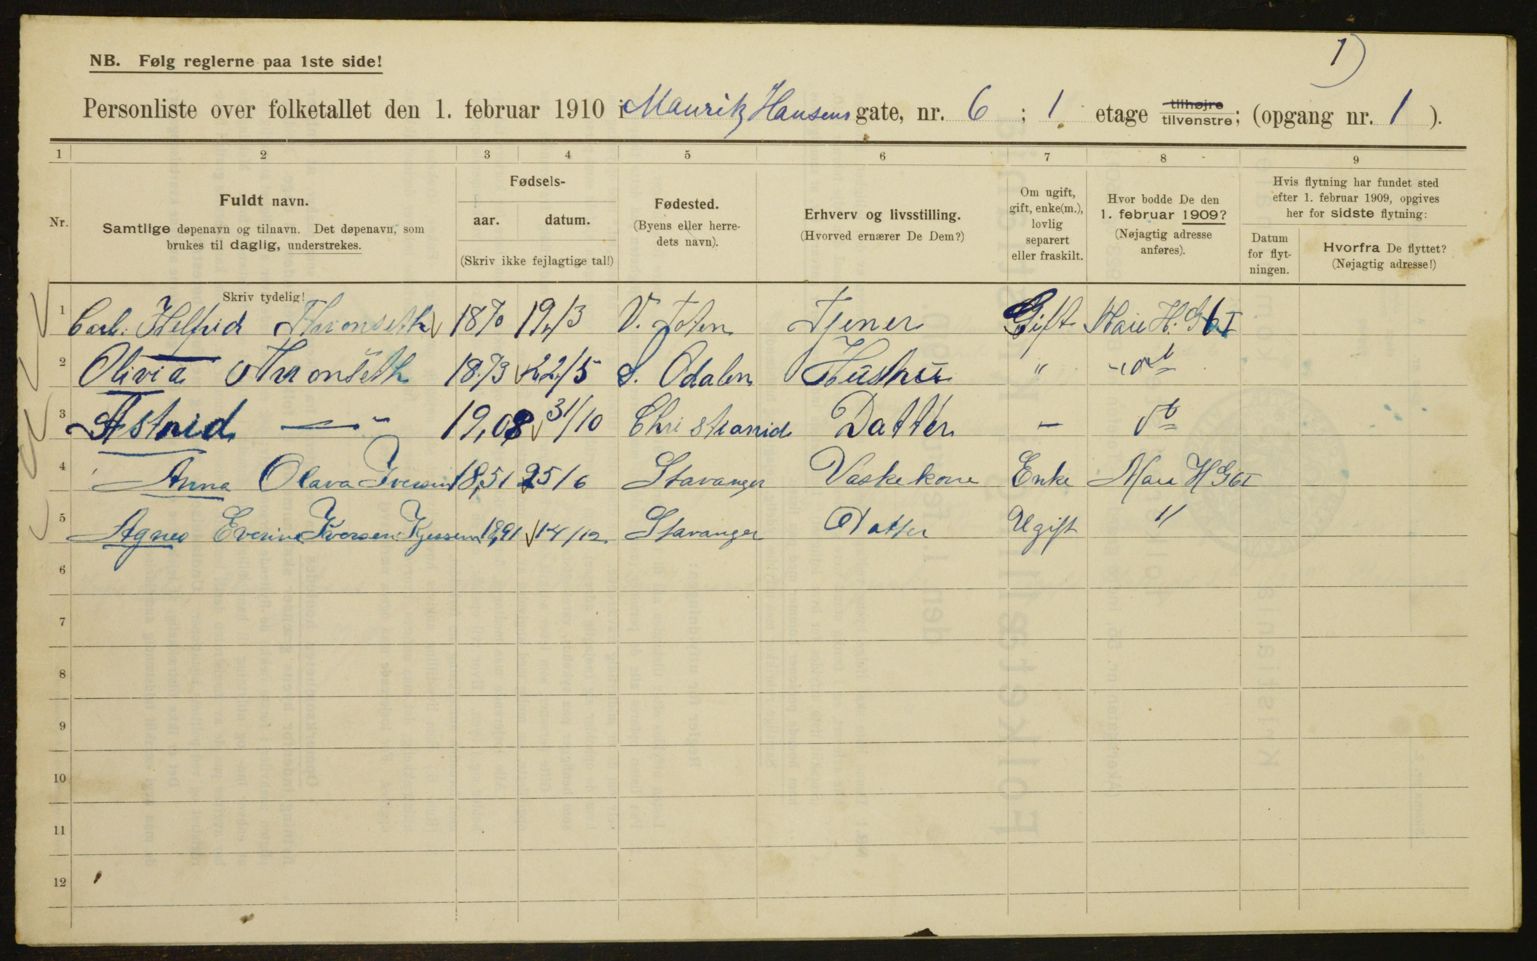 1)
NB. Følg reglerne paa 1ste side!
Personliste over folketallet den 1. februar 1910 i Mauritz Hansens gate, nr. 6 ; 1 etage tilhøjre tilvenstre; (opgang nr. 1 ).
1 2 3 4 5 6 7 8 9
Nr.
Fuldt navn.
Samtlige døpenavn og tilnavn. Det døpenavn, som
brukes til daglig, understrekes.
Skriv tydelig!
Fødsels-
aar. datum.
(Skriv ikke fejlagtige tal!)
Fødested.
(Byens eller herre-
dets navn).
Erhverv og livsstilling.
(Hvorved ernærer De Dem?)
Om ugift,
gift, enke(m.),
lovlig
separert
eller fraskilt.
Hvor bodde De den
1. februar 1909?
(Nøjagtig adresse
anføres).
Hvis flytning har fundet sted
efter 1. februar 1909, opgives
her for sidste flytning:
Datum
for flyt-
ningen.
Hvorfra De flyttet?
(Nøjagtig adresse!)
1 Carl. 1870 19/3 V. Toten Tjener Gift
2 Olivia 1873 22/5 S. Odalen Hustru " do
3 Astrid — " 1908 31/10 Christiania Datter — do
4 Anna Olava Iversen 1851 25/6 Stavanger Vaskekone Enke
5 Agnes Everine Iversen 1891 14/12 Stavanger Datter Ugift "
6
7
8
9
10
11
12